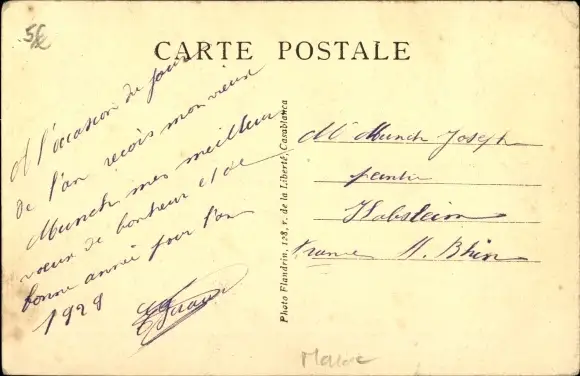 5€
CARTE POSTALE
A l'occasion du jour
de l'an reçois mon vieux
Munch mes meilleurs
voeux de bonheur et de
bonne année pour l'an
1928
Photo Flandrin, 128, r. de la Liberté, Casablanca
Mr Munch Joseph
peintre
Habsheim
France H. Rhin
Maroc